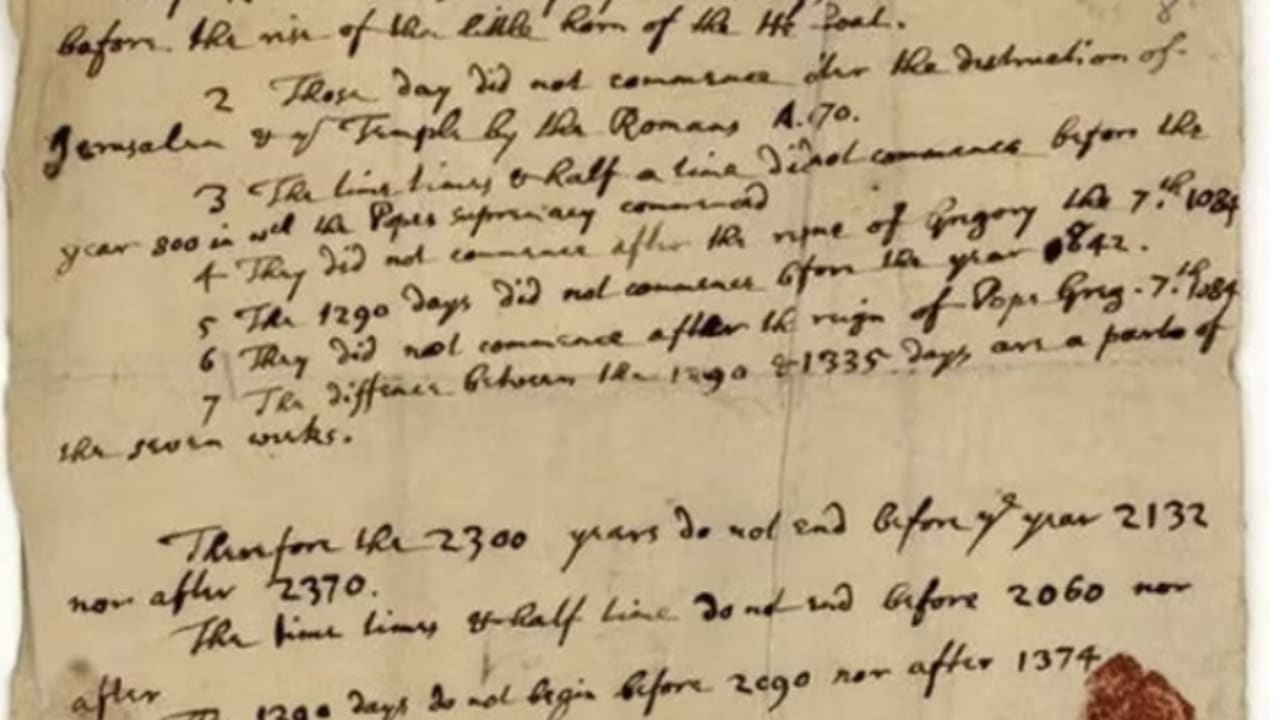 before the rise of the little horn of the He Goat.
2 Those day did not commence after the destruction of
Jerusalem & ye Temple by the Romans A. 70.
3 The time times & half a time did not commence before the
year 800 in wch the Popes supremacy commenced
4 They did not commence after the reigne of Gregory the 7.th 1084
5 The 1290 days did not commence before the year 842.
6 They did not commence after the reign of Pope Greg. 7.th 1084
7 The diffence between the 1290 & 1335 days are a parts of
the seven weeks.
Therefore the 2300 years do not end before ye year 2132
nor after 2370.
The time times & half time do not end before 2060 nor
after
1290 days do not begin before 2090 nor after 1374